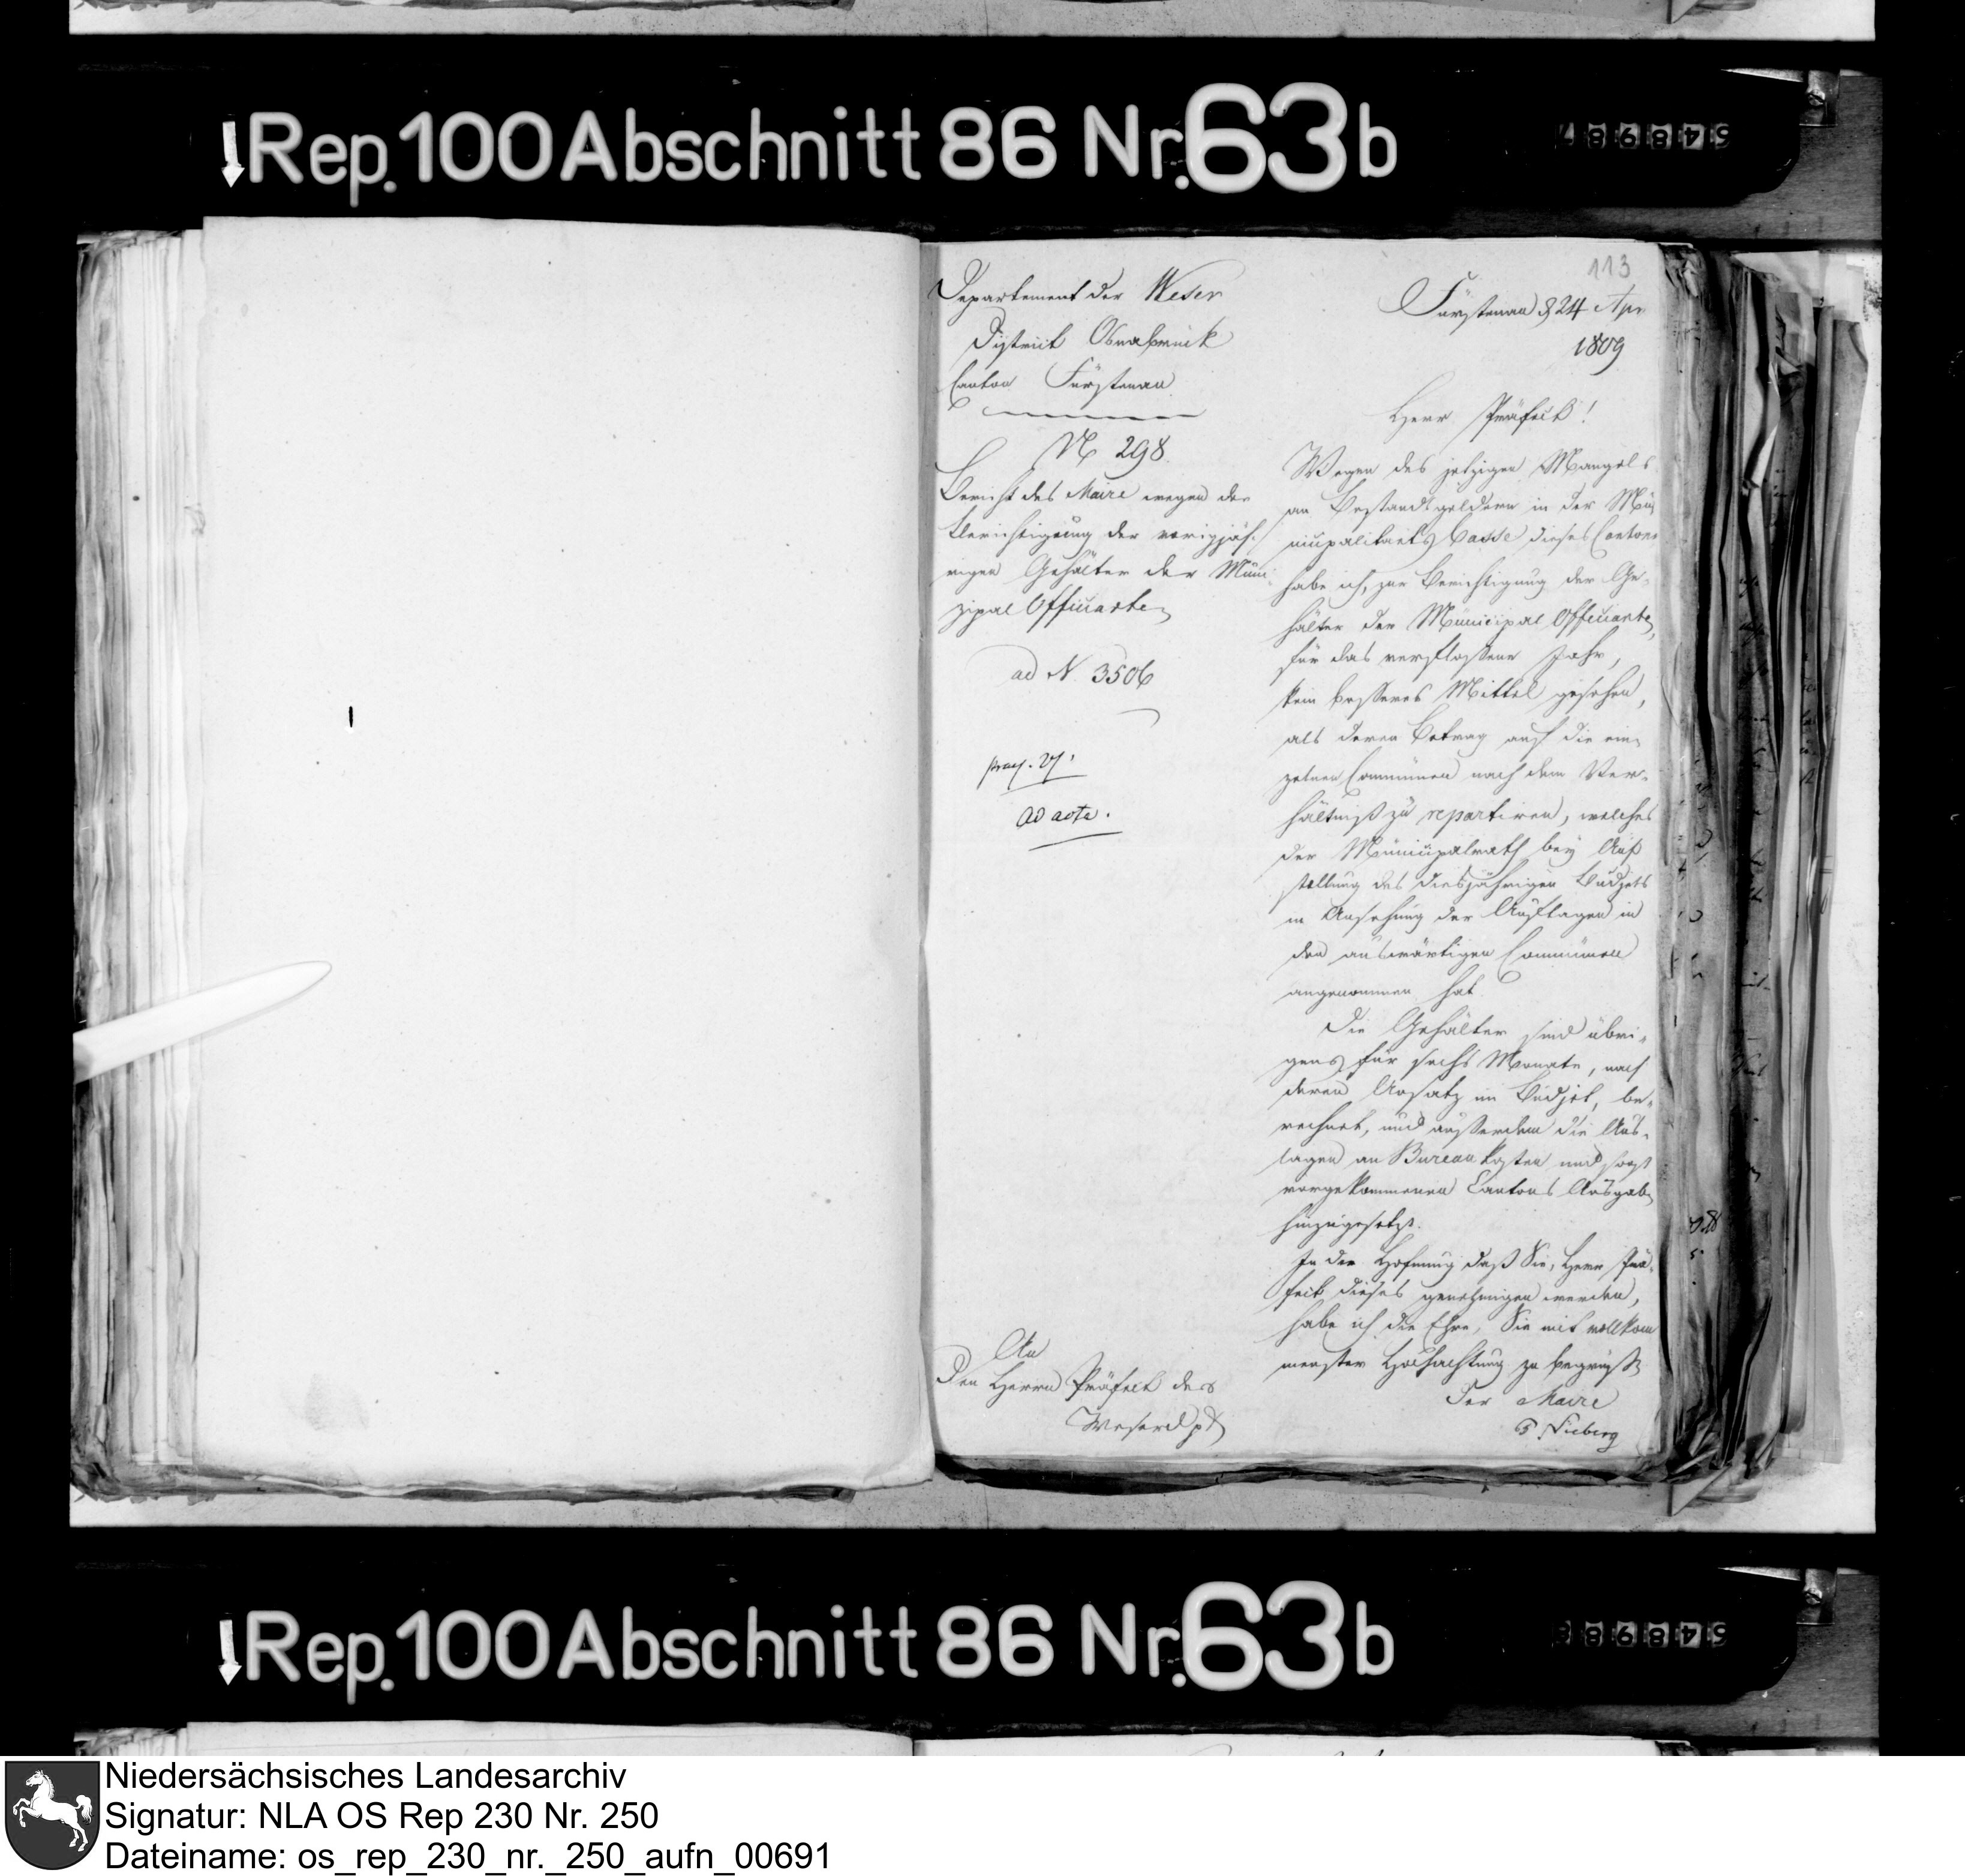 Rep. 100 Abschnitt 86 Nr. 63b
548987
113
Departement der Weser
District Osnabrück
Canton Fürstenau
N 298.
Bericht des Maire wegen der
Berichtigung der vorigjäh-
rigen Gehälter der Muni-
zipal Officianten
ad N. 3506
praes. 27.
ad acta.
An
Den Herrn Präfect des
Weserdpts
Fürstenau d 24 Apr
1809
Herr Präfect!
Wegen des jetzigen Mangels
an Bestandtgeldern in der Mu-
nicipalitaets Casse dieses Cantons
habe ich, zur Berichtigung der Ge-
hälter der Municipal Officianten
für das verflossene Jahr,
kein besseres Mittel gesehen,
als deren Betrag auf die ein-
zelnen Communen nach dem Ver-
hältniß zu repartiren, welches
der Municipalrath bey Auf
stellung des diesjährigen Budjets
in Ansehung der Auflagen in
den auswärtigen Communen
angenommen hat.
Die Gehälter sind übri-
gens für sechs Monate, nach
deren Ansatz im Budjet, be-
rechnet, und ausserdem die Aus-
lagen an Bureau Kosten und sonst
vorgekommenen Cantons Ausgaben
hinzugesetzt.
In der Hofnung daß Sie, Herr Prä-
fect dieses genehmigen werden,
habe ich die Ehre, Sie mit vollkom
menster Hochachtung zu begrüßen
Der Maire
Nieberg
Rep. 100 Abschnitt 86 Nr. 63b
Niedersächsisches Landesarchiv
Signatur: NLA OS Rep 230 Nr. 250
Dateiname: os_rep_230_nr._250_aufn_00691